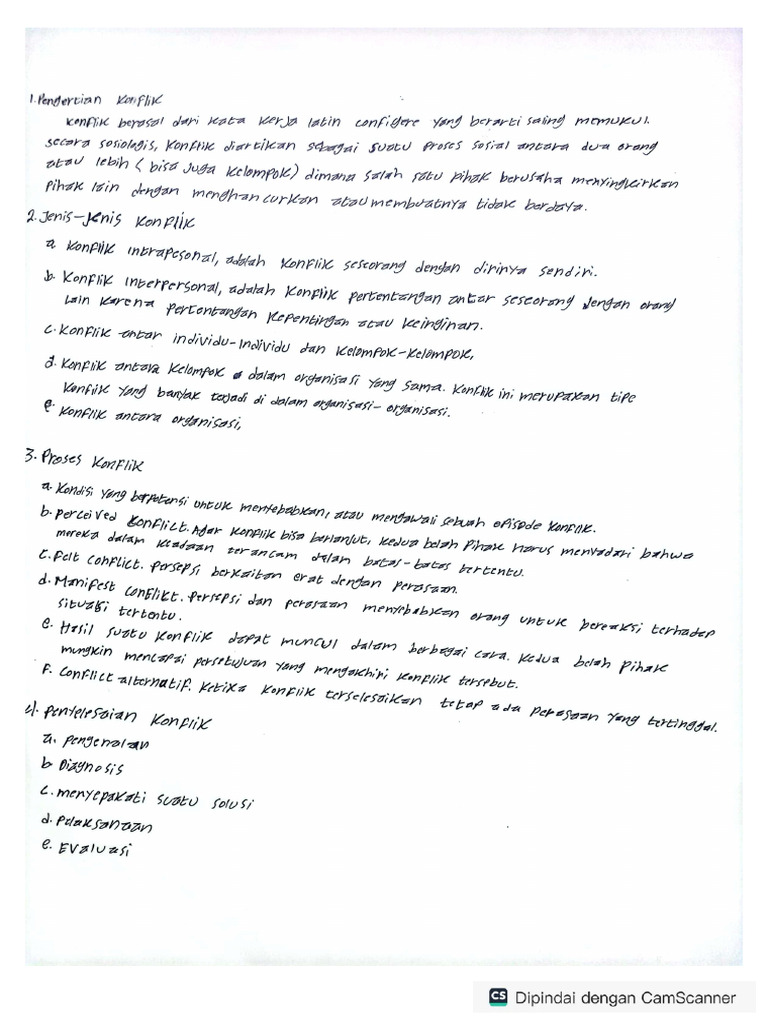 1. Pengertian Konflik
Konflik berasal dari kata kerja latin configere yang berarti saling memukul.
secara sosiologis, Konflik diartikan sebagai suatu proses sosial antara dua orang
atau lebih (bisa juga kelompok) dimana salah satu pihak berusaha menyingkirkan
Pihak lain dengan menghancurkan atau membuatnya tidak berdaya.
2. Jenis-Jenis Konflik
a. Konflik intrapesonal, adalah Konflik seseorang dengan dirinya sendiri.
b. Konflik Interpersonal, adalah Konflik pertentangan antar seseorang dengan orang
lain karena pertentangan kepentingan atau keinginan.
c. Konflik antar individu-Individu dan Kelompok-Kelompok,
d. Konflik antara Kelompok dalam organisasi yang sama. Konflik ini merupakan tipe
Konflik yang banyak terjadi di dalam organisasi-organisasi.
e. Konflik antara organisasi,
3. Proses Konflik
a. Kondisi yang berpotensi untuk menyebabkan, atau mengawali sebuah episode Konflik.
b. perceived Konflict. Agar Konflik bisa berlanjut, kedua belah pihak harus menyadari bahwa
mereka dalam keadaan terancam dalam batas-batas tertentu.
c. Felt conflict. persepsi berkaitan erat dengan perasaan.
d. Manifest conflikt. persepsi dan perasaan menyebabkan orang untuk bereaksi terhadap
situasi tertentu.
e. Hasil suatu Konflik dapat muncul dalam berbagai cara. Kedua belah pihak
mungkin mencapai persetujuan yang mengakhiri Konflik tersebut.
F. Conflict alternatif. Ketika Konflik terselesaikan tetap ada perasaan yang tertinggal.
4. Penyelesaian Konflik
a. pengenalan
b Diagnosis
c. menyepakati suatu solusi
d. Pelaksanaan
e. Evaluasi
CS Dipindai dengan CamScanner